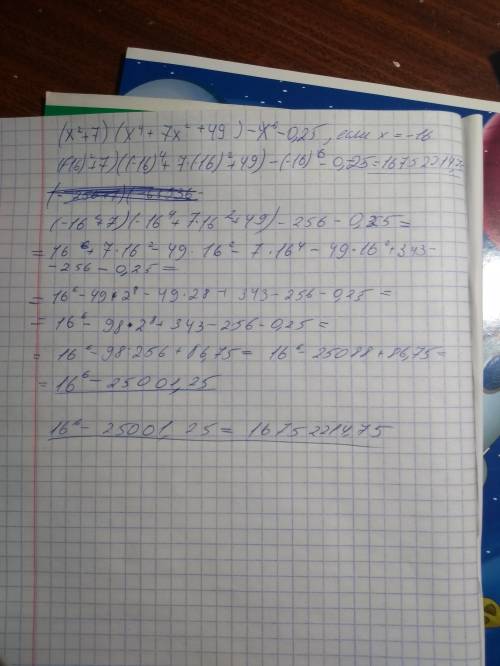 (x²+7)(x⁴+7x²+49)-x⁶-0,25, если x=-16
((-16)²+7)((-16)⁴+7·(-16)²+49)-(-16)⁶-0,25=167522147
(-16²+7)(-16⁴+7·16²+49)-256-0,25=
=16⁶+7·16²-49·16²-7·16⁴-49·16²+343-
-256-0,25=
=16⁶-49·2⁸-49·28+343-256-0,25=
=16⁶-98·2⁸+343-256-0,25=
=16⁶-98·256+86,75=16⁶-25088+86,75=
=16⁶-25001,25
16⁶-25001,25=16752214,75